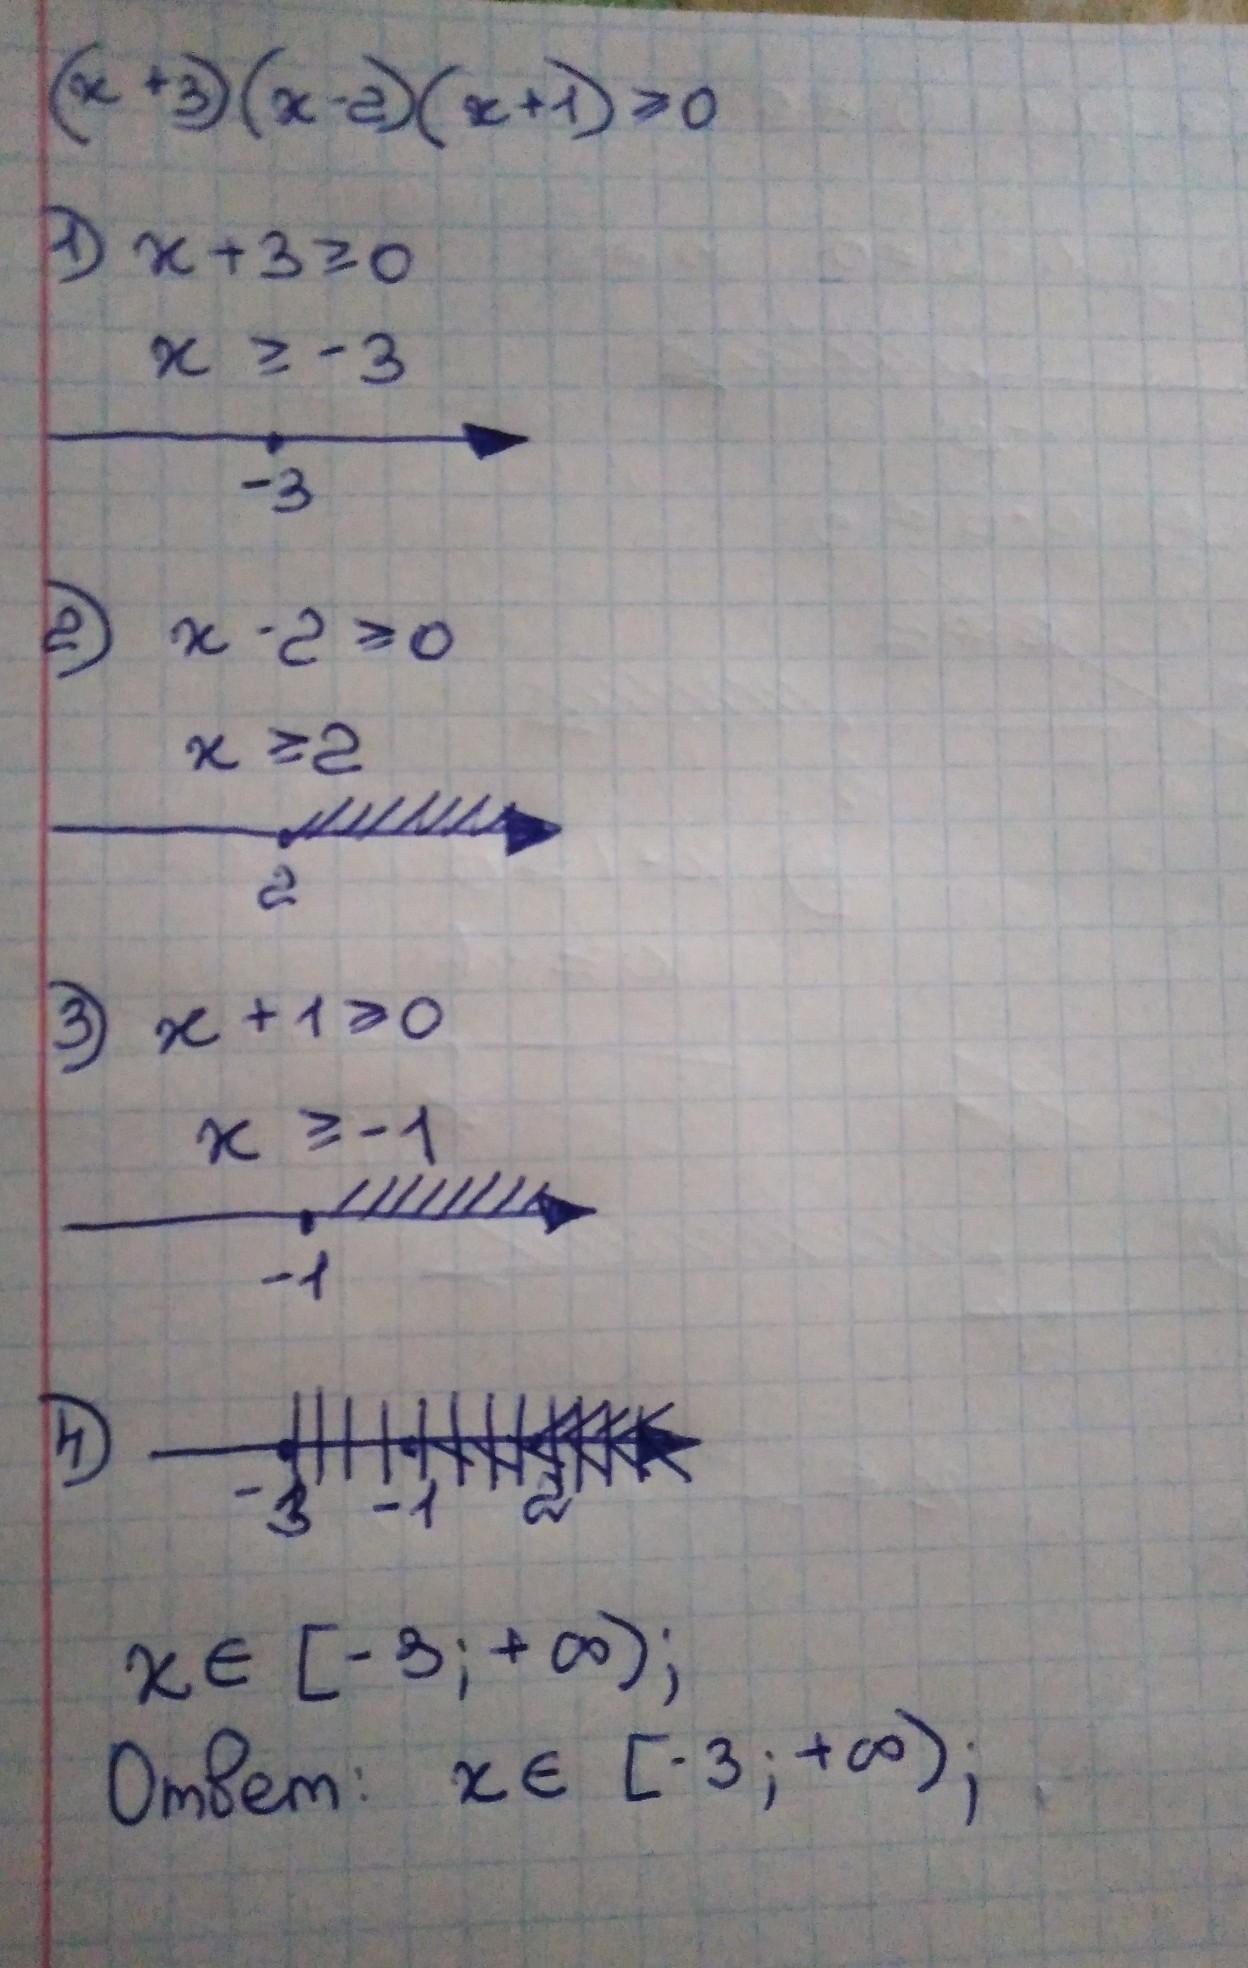 (x+3)(x-2)(x+1)⩾0
1) x+3≥0
x ≥ -3
-3
2) x-2⩾0
x ⩾2
2
3) x+1⩾0
x ⩾-1
-1
4)
-3 -1 2
x∈ [-3;+∞);
Ответ: x∈ [-3;+∞);